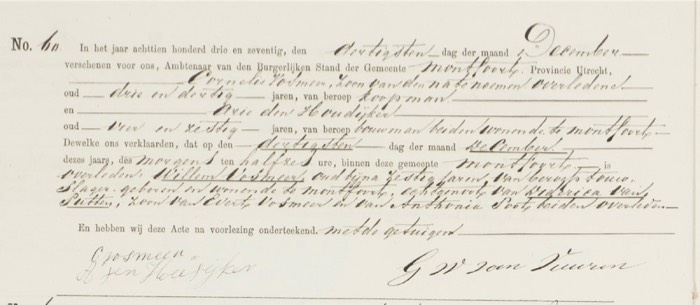 No. 60 In het jaar achttien honderd drie en zeventig, den dertigsten dag der maand December
verschenen voor ons, Ambtenaar van den Burgerlijken Stand der Gemeente Montfoort, Provincie Utrecht,
Cornelis Vosmeer, zoon van den na te noemen overledene
oud drie en dertig jaren, van beroep koopman
en Arie den Houdijker
oud vier en zestig jaren, van beroep bouwman beiden wonende te Montfoort
Dewelke ons verklaarden, dat op den dertigsten dag der maand December
dezes jaars, des morgens ten half zes ure, binnen deze gemeente Montfoort is
overleden Willem Vosmeer oud bijna zestig jaren, van beroep touw-
slager geboren en wonende te Montfoort, echtgenoot van Fredrica van
Putten, zoon van Evert Vosmeer en van Anthonia Poot, beiden overleden
En hebben wij deze Acte na voorlezing onderteekend. met de getuigen
C Vosmeer
A den Houdijker
G W van Vuuren